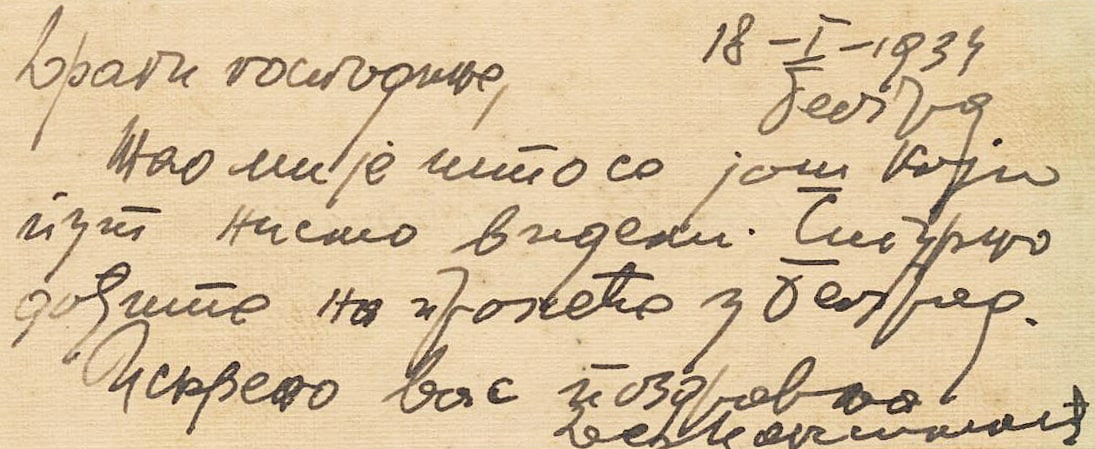 18-I-1934
Београд
Драги господине,
Жао ми је што се још који
пут нисмо видели. Сигурно
дођите на пролеће у Београд.
Искрено вас поздравља